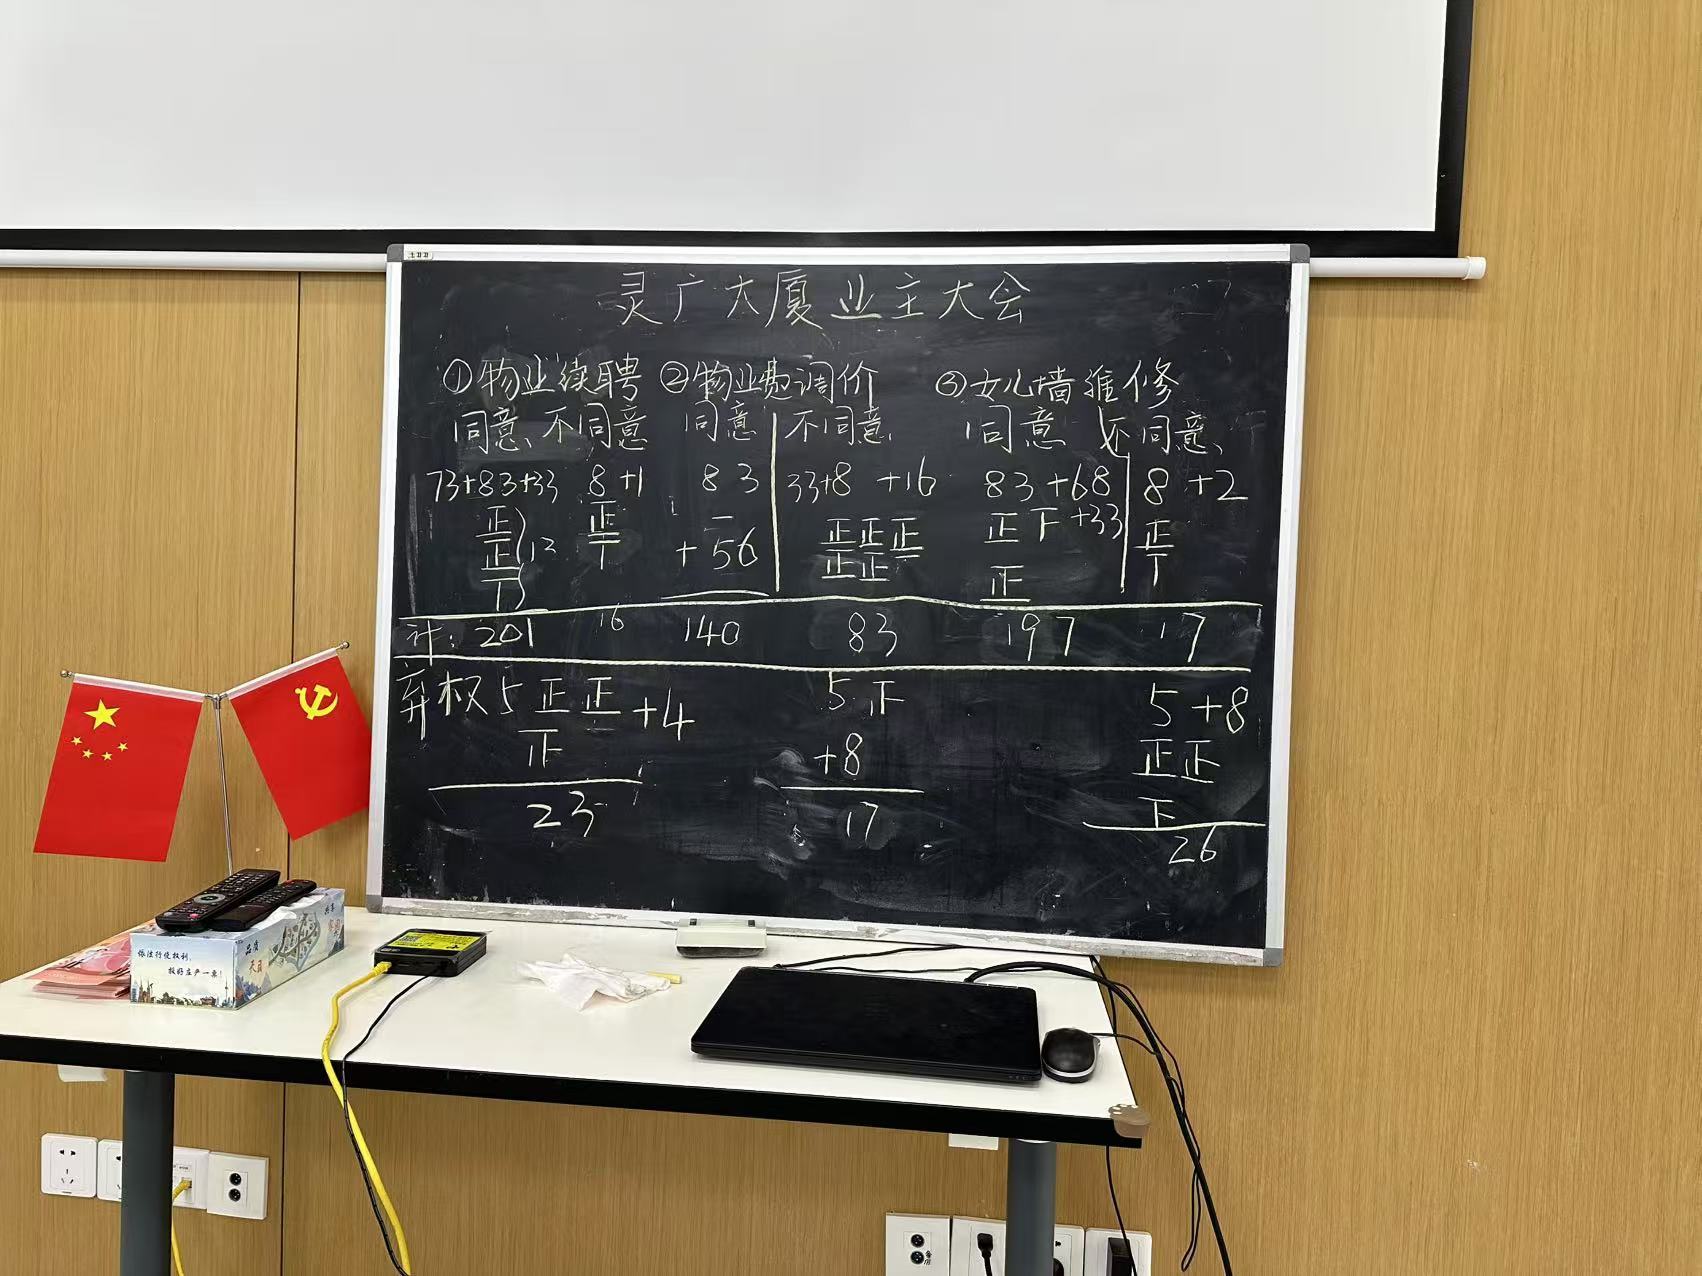 灵广大厦业主大会
①物业续聘 ②物业费调价 ③女儿墙维修
同意 不同意 同意 不同意 同意 不同意
73+83+33 8+1 83 33+8 +16 83+68 8+2
正 正 一 正正正 正下 +33 正
正 12 丅 +56 正正 正 丅
丅
计: 201 16 140 83 197 17
弃权 5 正正 +4 5 下 5 +8
正 +8 正正
下
23 17 26
依法行使权利,
投好庄严一票!
品质